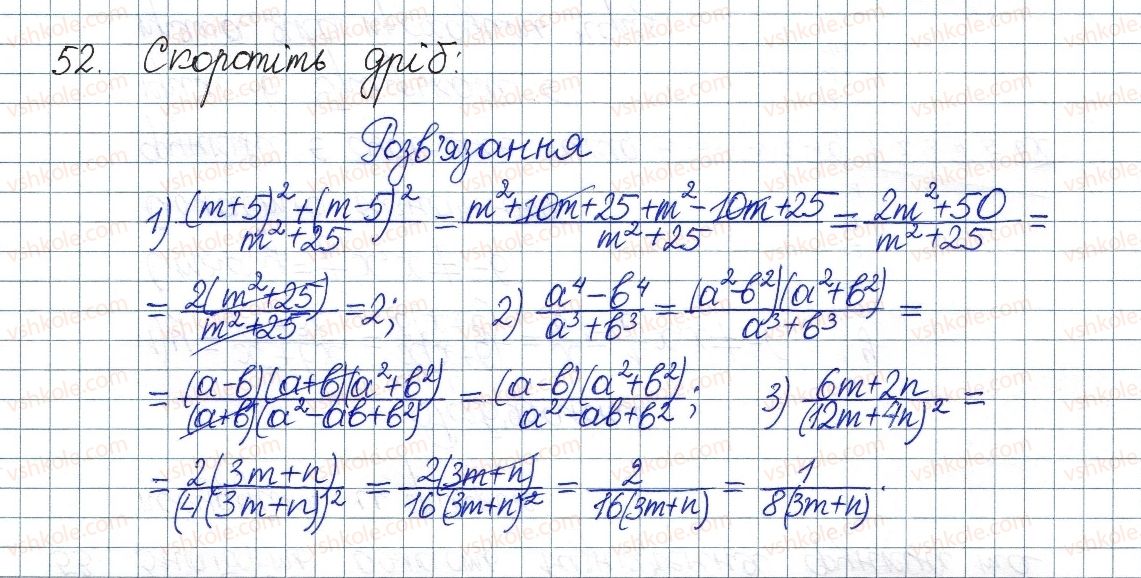 52. Скоротіть дріб:
Розв'язання
1) ((m+5)²+(m-5)²)/(m²+25) = (m²+10m+25+m²-10m+25)/(m²+25) = (2m²+50)/(m²+25) =
= (2(m²+25))/(m²+25) = 2; 2) (a⁴-b⁴)/(a³+b³) = ((a²-b²)(a²+b²))/(a³+b³) =
= ((a-b)(a+b)(a²+b²))/((a+b)(a²-ab+b²)) = ((a-b)(a²+b²))/(a²-ab+b²); 3) (6m+2n)/(12m+4n)² =
= (2(3m+n))/(4(3m+n))² = (2(3m+n))/(16(3m+n)²) = 2/(16(3m+n)) = 1/(8(3m+n)).